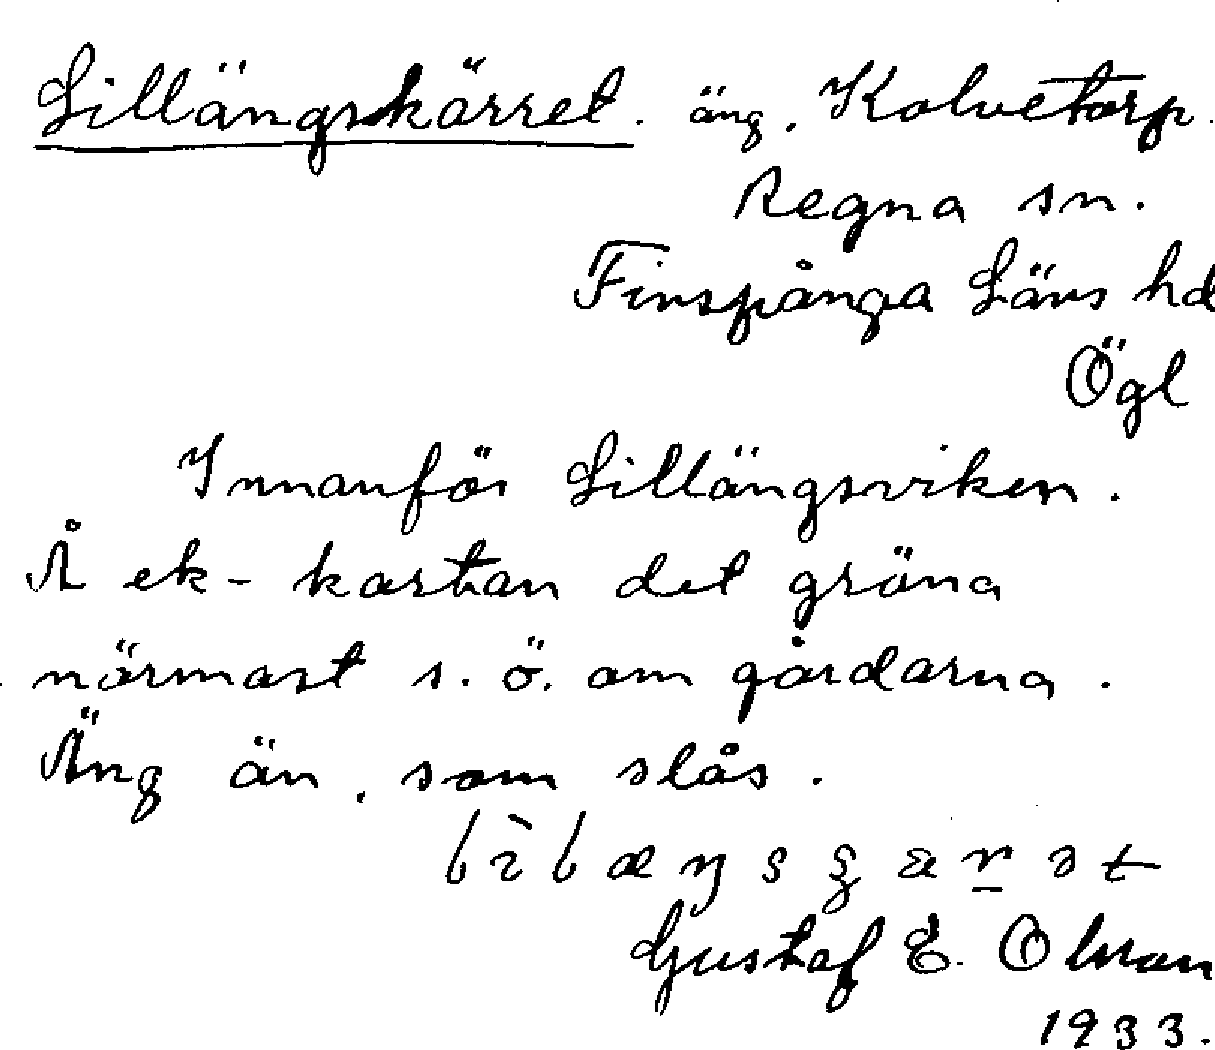 Lillängskärret. äng. Kolvetorp.
Regna sn.
Finspånga Läns hd
Ögl
Innanför Lillängsviken.
Å ek-kartan det gröna
närmast s.ö. om gårdarna.
Äng än, som slås.
Gustaf E. Olson
1933.